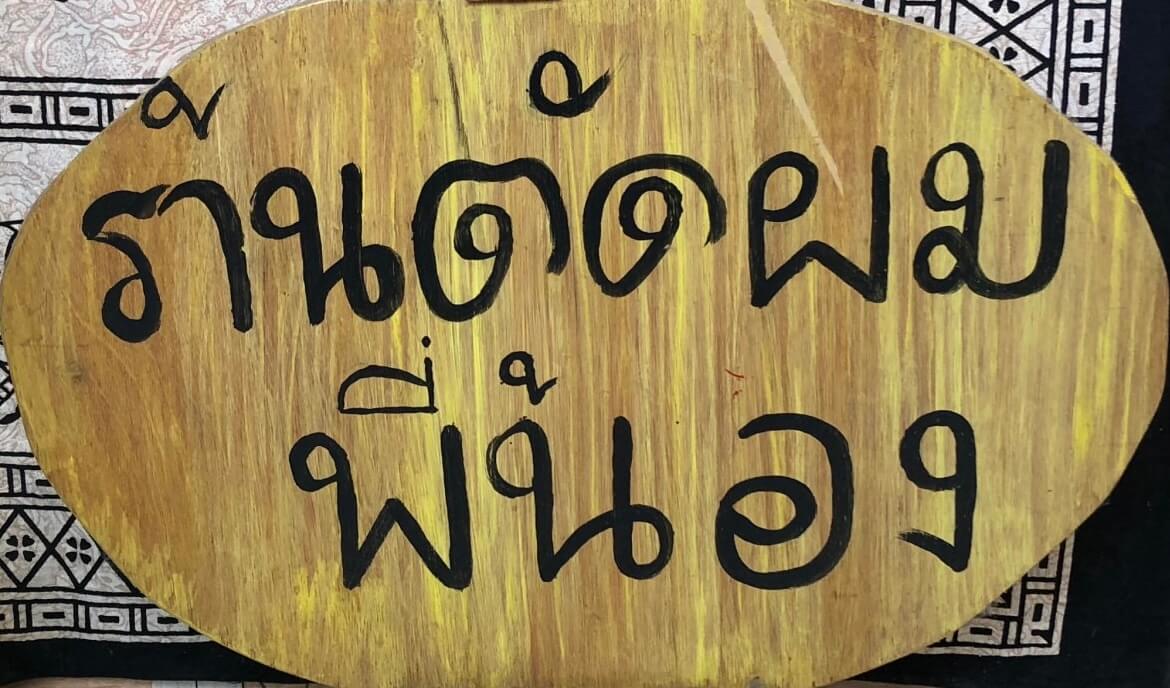 ร้านตัดผม
พี่น้อง